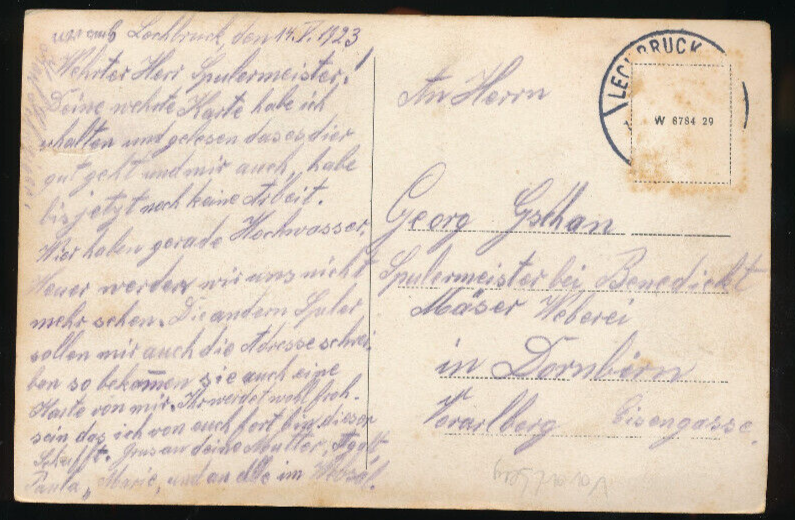 Lechbruck, den 14.V.1923
Wehrter Herr Spulermeister!
Deine wehrte Karte habe ich
erhalten und gelesen das es dier
gut geht und mir auch, habe
bis jetzt noch keine Arbeit.
Wier haben gerade Hochwasser.
Heuer werden wir uns nicht
mehr sehen. Die andern Spuler
sollen mir auch die Adresse schrei-
ben so bekommen sie auch eine
Karte von mir. Ihr werdet wohl froh
sein das ich von euch fort bin dieser
Schuft. Grus an deine Mutter, Agat,
Paula, Marie, und an alle im
An Herrn
Georg Gsthan
Spulermeister bei Benedickt
Mäser Weberei
in Dornbirn
Vorarlberg Eisengasse.
LECHBRUCK
W 8784 29